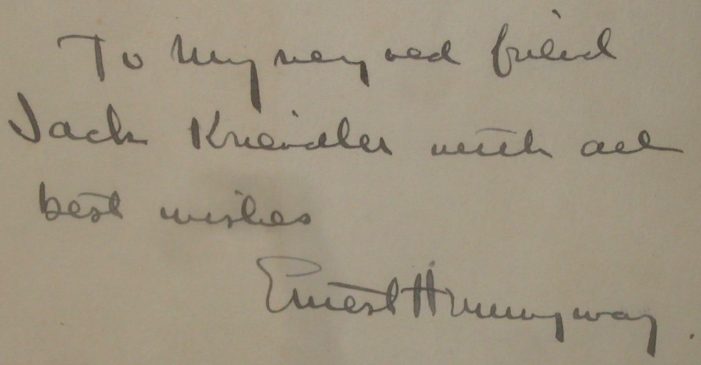 To my very old friend
Jack Kriendler with all
best wishes
Ernest Hemingway.